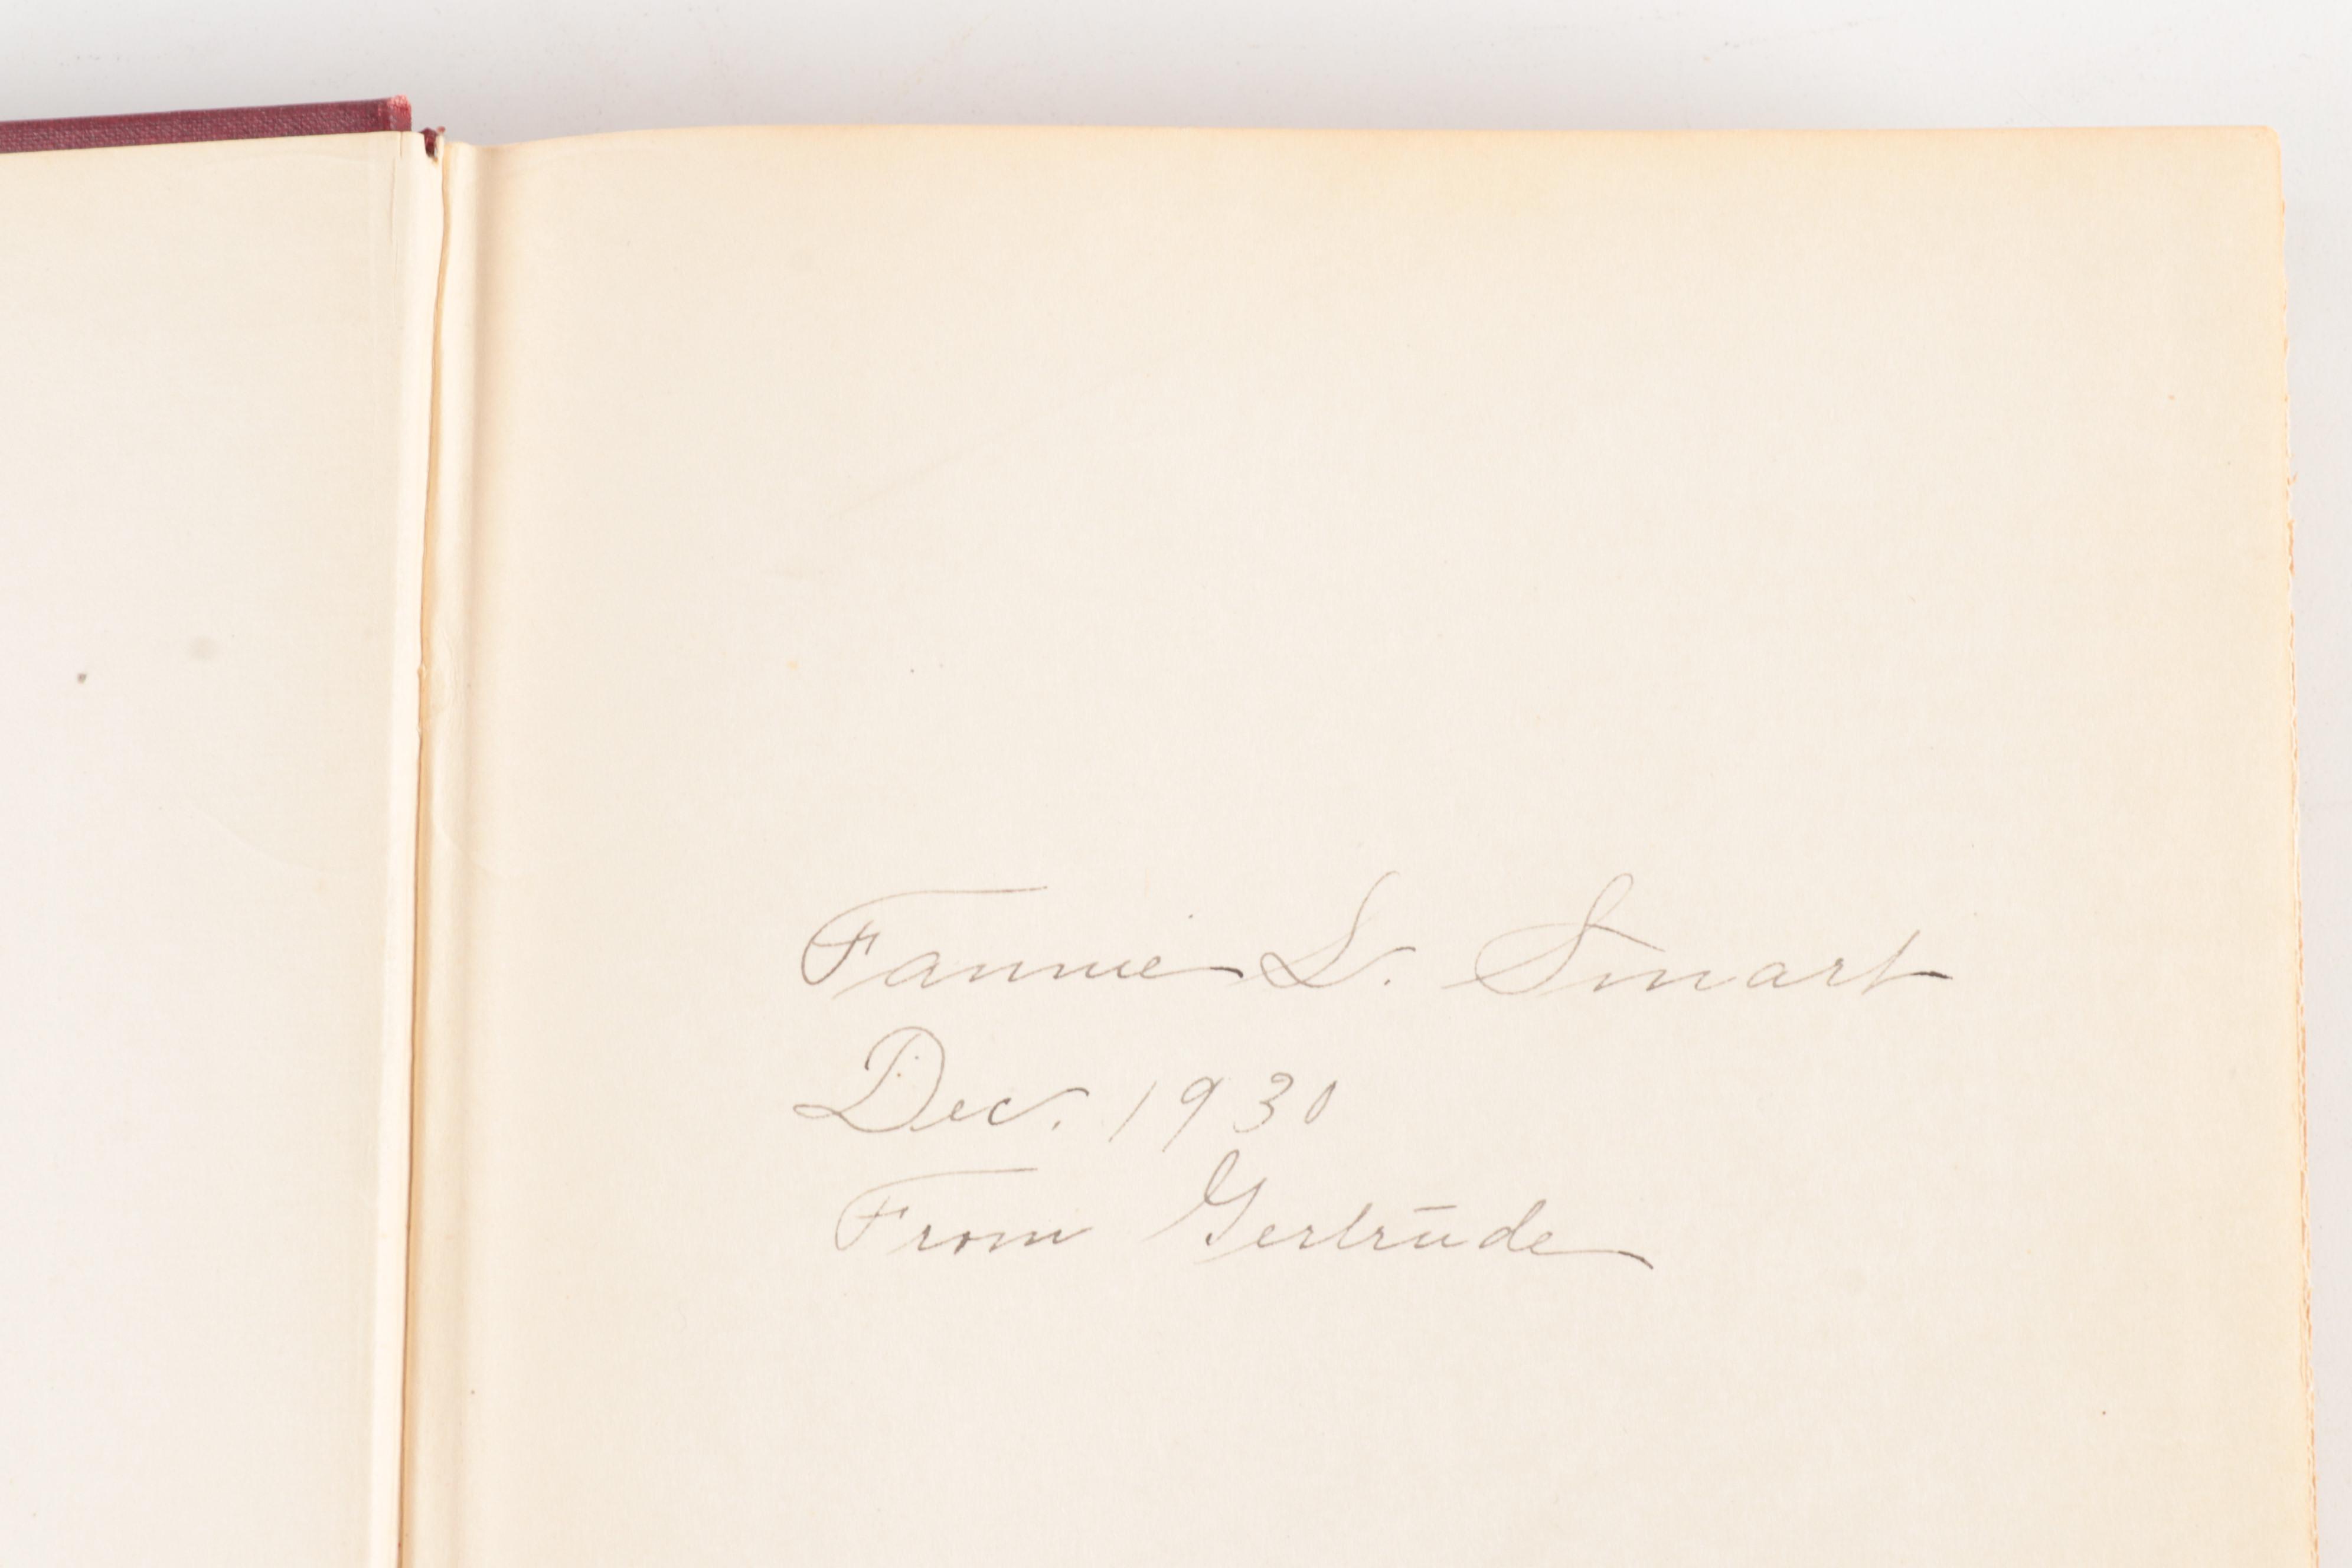 Fannie L. Smart
Dec. 1930
From Gertrude